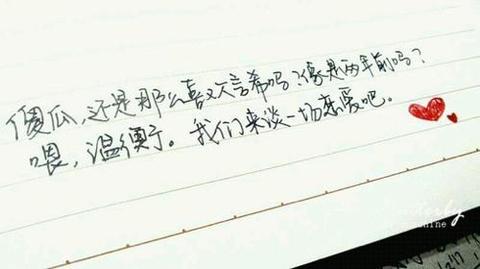 傻瓜，还是那么喜欢言希吗？像是两年前吗？
喂，温衡。我们来谈一场恋爱吧。